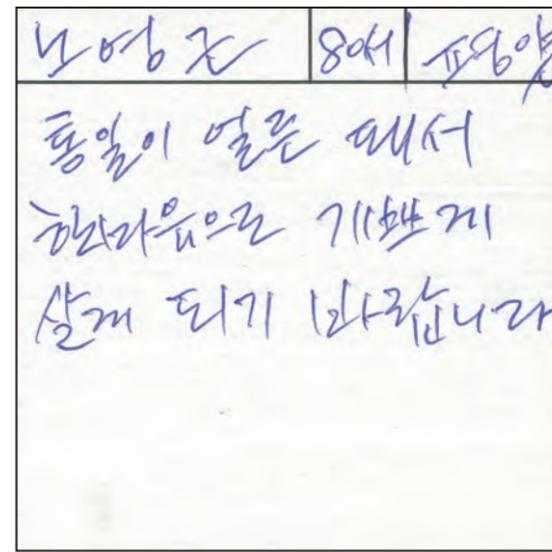 노영근 80세 평양
통일이 얼른 돼서
한마음으로 기쁘게
살게 되기 바랍니다